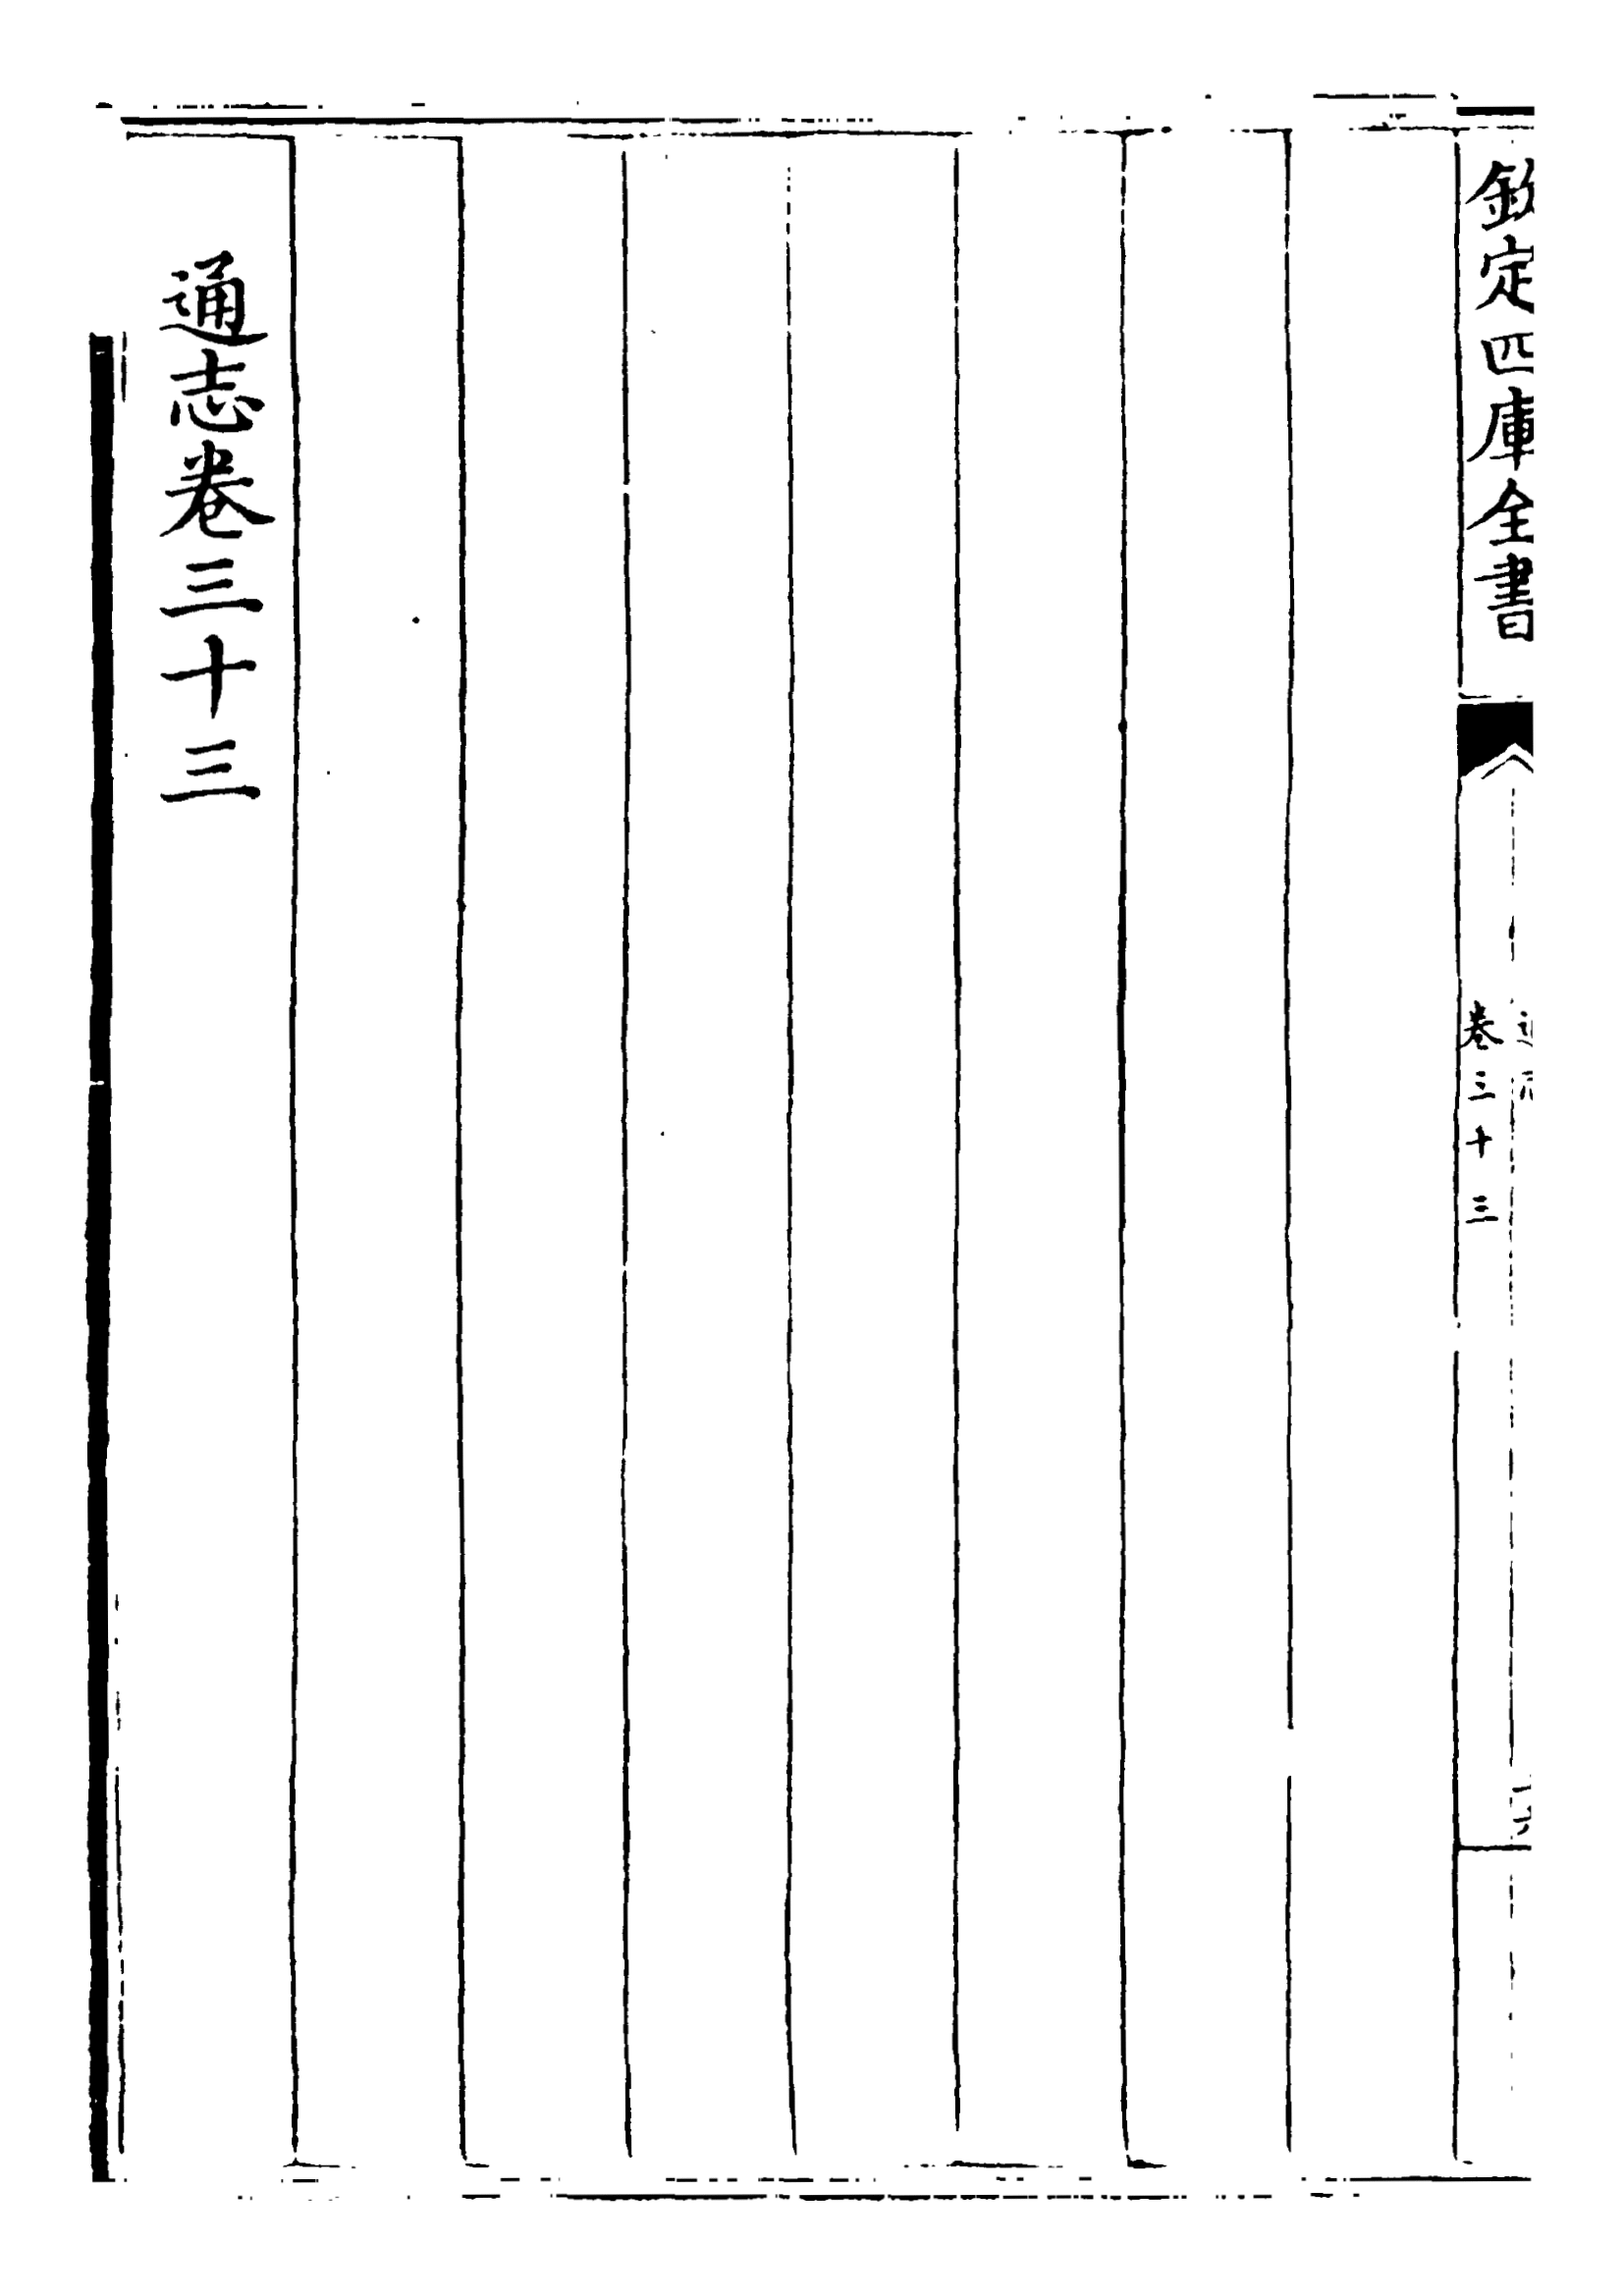 欽定四庫全書
卷三十三
通志卷三十三